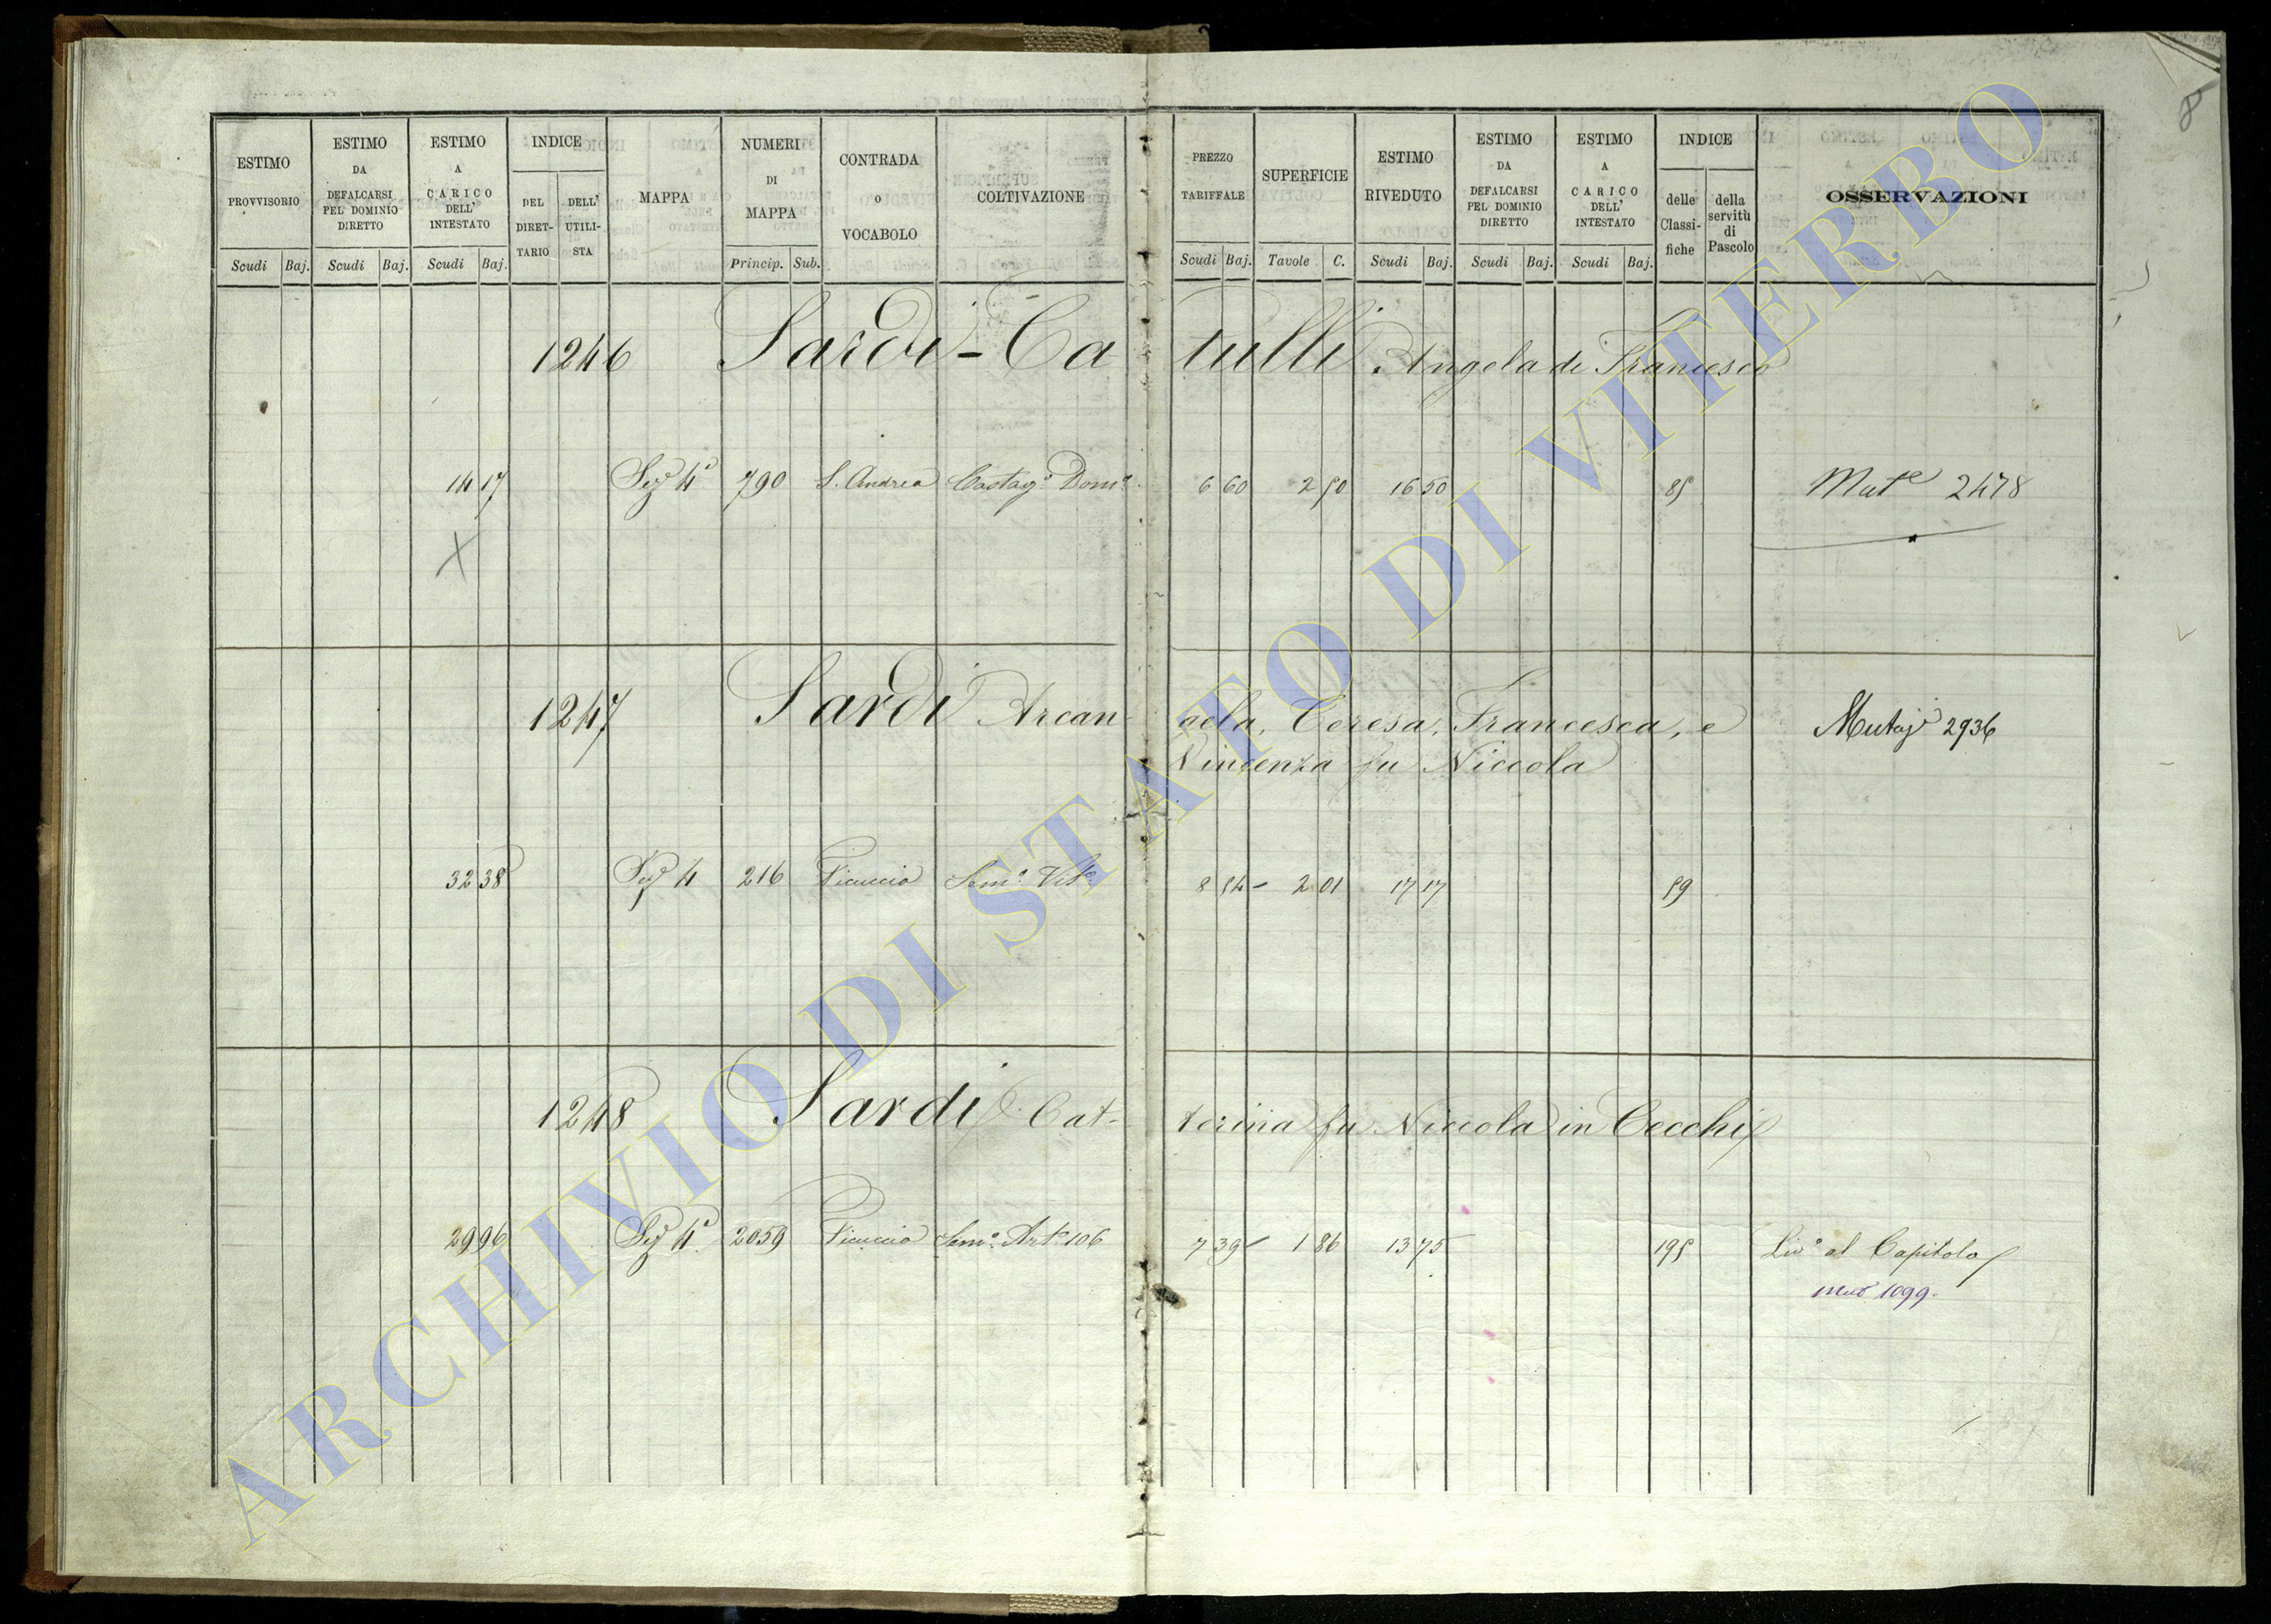 8
ESTIMO PROVVISORIO Scudi Baj.
ESTIMO DA DEFALCARSI PEL DOMINIO DIRETTO Scudi Baj.
ESTIMO A CARICO DELL' INTESTATO Scudi Baj.
INDICE DEL DIRET-TARIO DELL' UTILI-STA
MAPPA
NUMERI DI MAPPA Princip. Sub.
CONTRADA o VOCABOLO
COLTIVAZIONE
PREZZO TARIFFALE Scudi Baj.
SUPERFICIE Tavole C.
ESTIMO RIVEDUTO Scudi Baj.
ESTIMO DA DEFALCARSI PEL DOMINIO DIRETTO Scudi Baj.
ESTIMO A CARICO DELL' INTESTATO Scudi Baj.
INDICE delle Classi-fiche della servitù di Pascolo
OSSERVAZIONI
1246 Sardi-Catulli Angela di Francesco
14 17 Sez. 4ª 790 S. Andrea Castagº Domº 6 60 2 50 16 50 85 Mutᵉ 2478
X
1247 Sardi Arcangela, Teresa, Francesca, e Mutaz 2936
Vincenza fu Niccola
32 38 Sez 4 216 Picuccio Semº Vitº 8 54 2 01 17 17 59
1248 Sardi Cat-terina fu Niccola in Cecchi
29 96 Sez 4ª 2059 Picuccio Semº Artº 106 7 39 1 86 13 75 195 Livº al Capitolo
mut 1099.
ARCHIVIO DI STATO DI VITERBO